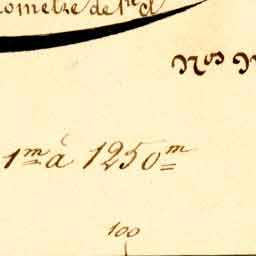 ometre de 1re cl
Nos
1m à 1250m
100